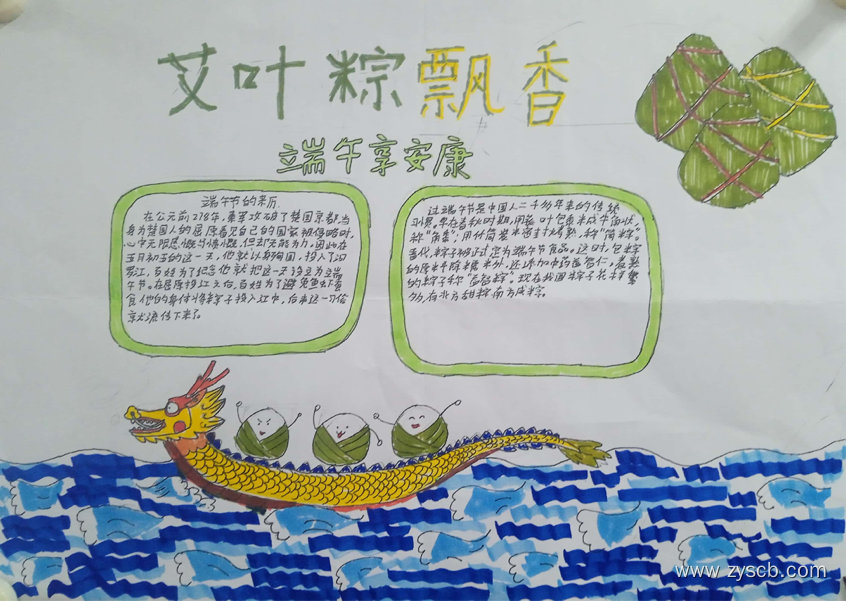 艾叶粽飘香
端午享安康
端午节的来历
在公元前278年,秦军攻破了楚国京都,当
身为楚国人的屈原看见自己的国家被侵略时,
心中无限感慨与愤慨,但却无能为力。因此在
五月初五的这一天,他就以身殉国,投入了汨
罗江,百姓为了纪念他就把这一天设立为端
午节。在屈原投江之后,百姓为了避免鱼虾蚕
食他的身体将粽子投入江中,后来这一习俗
就流传下来了。
过端午节是中国人二千多年来的传统
习惯。早在春秋时期,用菰叶包黍米成牛角状,
称"角黍";用竹筒装米密封烤熟,称"筒粽"。
晋代,粽子被正式定为端午节食品。这时,包粽
的原米除糯米外,还添加中药益智仁,煮熟
的粽子称"益智粽"。现在我国粽子花样繁
多,有北方甜粽南方咸粽。
www.zyscb.com